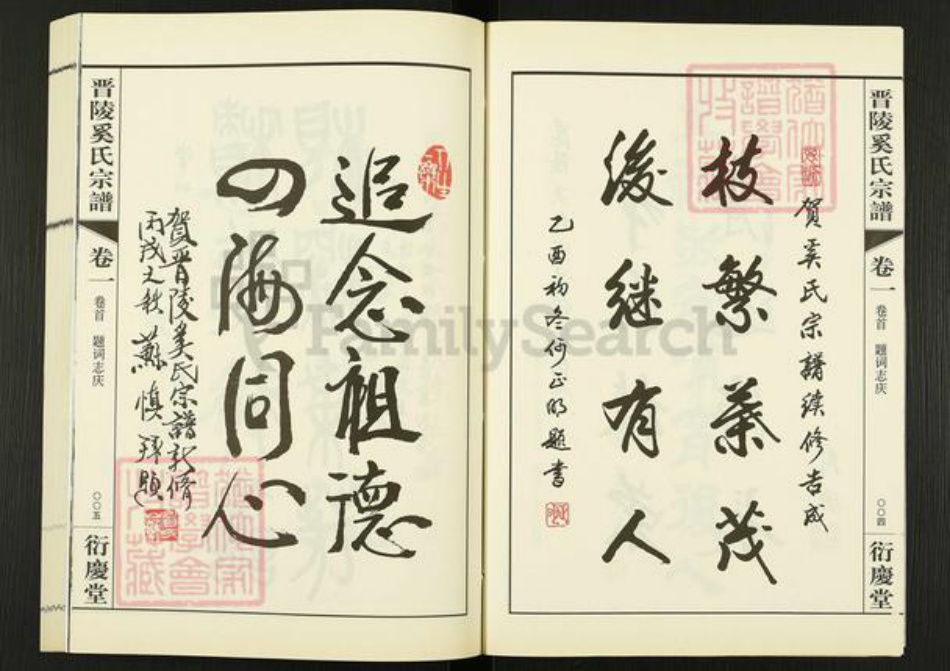 晋陵奚氏宗譜
卷一
卷首 題词志庆
〇〇四
衍慶堂
贺奚氏宗譜续修告成
枝繁葉茂
後继有人
乙酉初冬何正明题書
追念祖德
四海同心
贺晋陵奚氏宗譜新修
丙戌之秋蘇慎拜题
晋陵奚氏宗譜
卷一
卷首 題词志庆
〇〇五
衍慶堂
FamilySearch